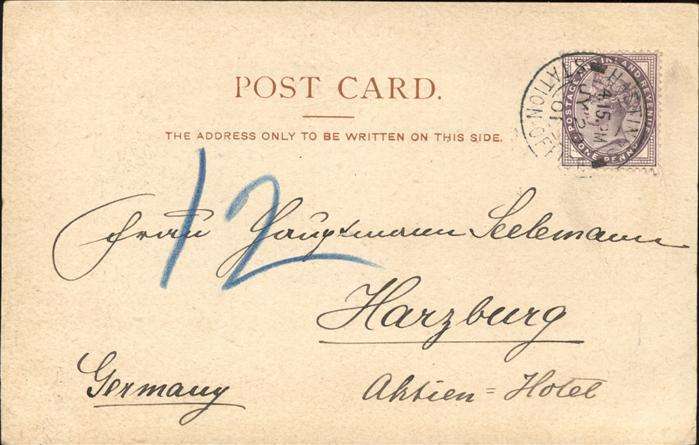 POST CARD.
THE ADDRESS ONLY TO BE WRITTEN ON THIS SIDE.
POSTAGE AND INLAND REVENUE
ONE PENNY
STATION OFF
4.15 PM
JY
01
12
Frau Hauptmann Seelemann
Harzburg
Germany
Aktien=Hotel